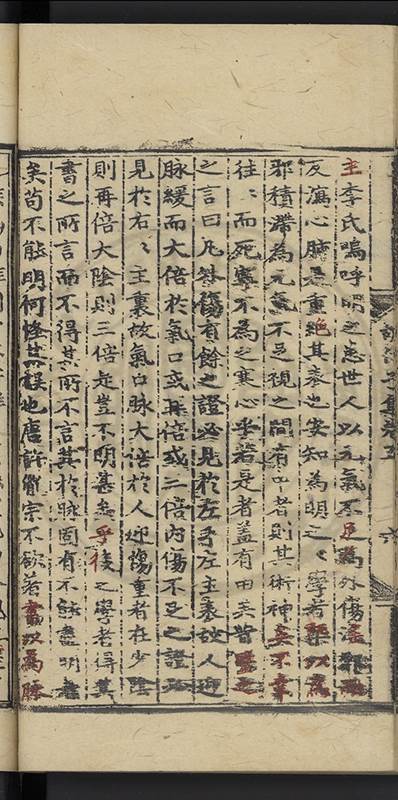 主李氏嗚呼明之悲世人以元氣不足為外傷
反瀉心肺是重絕其表也安知為明之之學者
邪積滯為元氣不足視之間有中者則其術神矣不幸
往往而死寧不為之寒心乎若是者蓋有由矣昔
之言曰凡外傷有餘之證必見於左手左主表故人迎
脉緩而大倍於氣口或再倍或三倍內傷不足之證必
見於右右主裏故氣口脉大倍於人迎傷重者在少陰
則再倍太陰則三倍是豈不明甚矣乎後之學者得其
書之所言而不得其所不言其於脉固有不能盡明者
矣苟不能明何怪其誤也唐許胤宗不欲著書以為脉
六